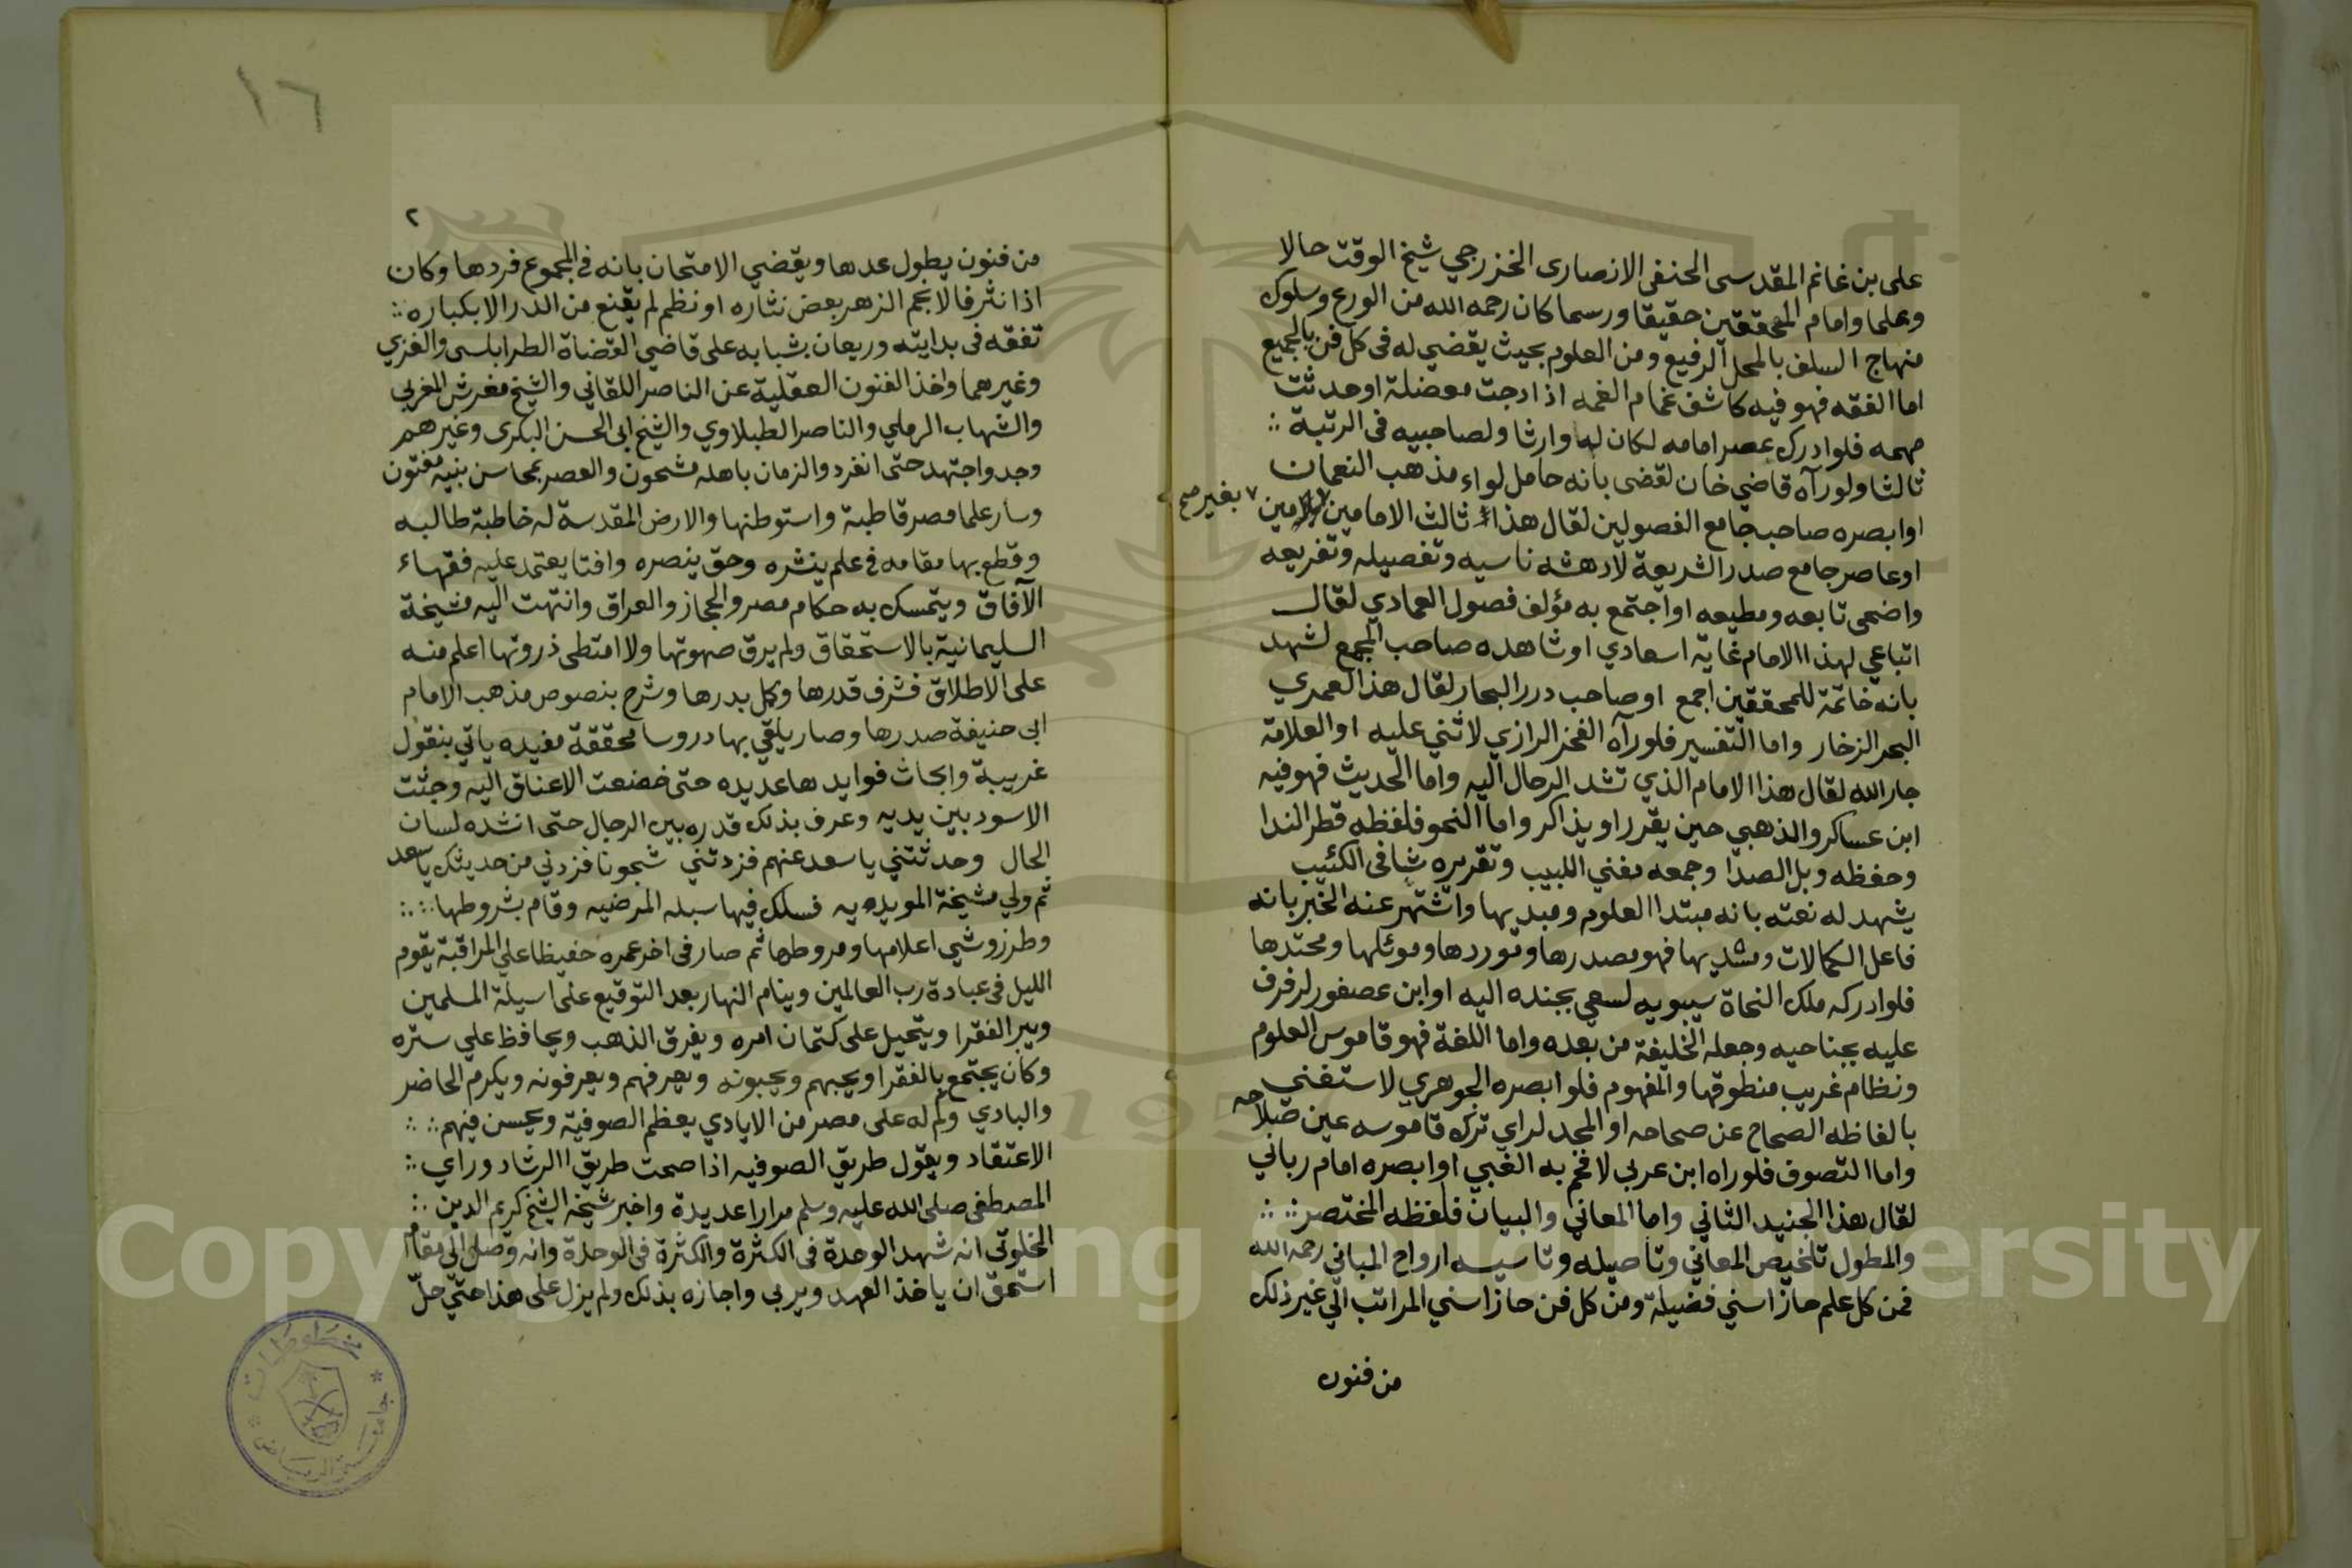 على بن غانم المقدسى الحنفى الانصارى الخزرجي شيخ الوقت حالا
وعلما وامام المحققين حقيقا ورسما كان رحمه الله من الورع وسلوك
منهاج السلف بالمحل الرفيع ومن العلوم بحيث يقضي له فى كل فن بالجميع
اما الفقه فهو فيه كاشف غمام الغمه اذا دجت معضلة او حدثت
مهمه فلو ادرك عصر امامه لكان له وارثا ولصاحبيه فى الرتبة
ثالثا ولو رآه قاضي خان لقضى بانه حامل لواء مذهب النعمان
او ابصره صاحب جامع الفصولين لقال هذا ثالث الامامين بغير مين
بغير صح
او عاصر جامع صدر الشريعة لادهشه تاسيسه وتفصيله وتفريعه
واضحى تابعه ومطيعه او اجتمع به مؤلف فصول العمادي لقال
اتباعي لهذا الامام غاية اسعادي او شاهده صاحب المجمع لشهد
بانه خاتمة للمحققين اجمع او صاحب درر البحار لقال هذا لعمري
البحر الزخار واما التفسير فلو رآه الفخر الرازي لاثني عليه او العلامة
جار الله لقال هذا الامام الذي تشد الرحال اليه واما الحديث فهو فيه
ابن عساكر والذهبي حين يقرر او يذاكر واما النحو فلفظه قطر الندا
وحفظه وبل الصدا وجمعه مغني اللبيب وتقريره شافى الكئيب
يشهد له نعته بانه مبتدا العلوم ومبديها واشتهر عنه الخبر بانه
فاعل الكمالات ومسديها فهو مصدرها وموردها وموئلها ومحتدها
فلو ادركه ملك النحاة سيبويه لسعي بجنده اليه او ابن عصفور لرفرف
عليه بجناحيه وجعله الخليفة من بعده واما اللغة فهو قاموس العلوم
ونظام غريب منطوقها والمفهوم فلو ابصره الجوهري لاستغني
بالفاظه الصحاح عن صحاحه او المجد لراي ترك قاموسه عين صلاحه
واما التصوف فلو راه ابن عربى لافحم به الغبي او ابصره امام رباني
لقال هذا الجنيد الثاني واما المعاني والبيان فلفظه المختصر
والمطول تلخيص المعاني وتاصيله وتاسيسه ارواح المباني رحمه الله
فمن كل علم حاز اسني فضيلة ومن كل فن حاز اسني المراتب الي غير ذلك
من فنون
١٦
٢
من فنون يطول عدها ويقضي الامتحان بانه فى المجموع فردها وكان
اذا نثر فالانجم الزهر بعض نثاره او نظم لم يقنع من الدر الا بكباره
تفقه فى بدايته وريعان شبابه على قاضي القضاة الطرابلسى والغزي
وغيرهما واخذ الفنون العقلية عن الناصر اللقاني والشيخ مغوش المغربى
والشهاب الرملي والناصر الطبلاوي والشيخ ابى الحسن البكرى وغيرهم
وجد واجتهد حتى انفرد والزمان باهله مشحون والعصر بمحاسن بنيه مفتون
وسار علما مصر قاطبة واستوطنها والارض المقدسة له خاطبة طالبه
وقطع بها مقامه فى علم ينشره وحق ينصره وافتا يعتمد عليه فقهاء
الآفاق ويتمسك به حكام مصر والحجاز والعراق وانتهت اليه مشيخة
السليمانية بالاستحقاق ولم يرق صهوتها ولا امتطى ذروتها اعلم منه
على الاطلاق فشرف قدرها وكمل بدرها وشرح بنصوص مذهب الامام
ابى حنيفة صدرها وصار يلقي بها دروسا محققة مفيده ياتي بنقول
غريبة وابحاث فوايدها عديده حتى خضعت الاعناق اليه وجثت
الاسود بين يديه وعرف بذلك قدره بين الرجال حتى انشده لسان
الحال وحدثتني يا سعد عنهم فزدتني شجونا فزدني من حديثك يا سعد
ثم ولي مشيخة المويديه فسلك فيها سبله المرضيه وقام بشروطها
وطرز وشي اعلامها ومروطها ثم صار فى اخر عمره حفيظا علي المراقبة يقوم
الليل فى عبادة رب العالمين وينام النهار بعد التوقيع على اسيلة المسلمين
ويبر الفقرا ويتحيل على كتمان امره ويفرق الذهب ويحافظ علي ستره
وكان يجتمع بالفقرا ويحبهم ويحبونه ويعرفهم ويعرفونه ويكرم الحاضر
والبادي وكم له على مصر من الايادي يعظم الصوفية ويحسن فيهم
الاعتقاد ويقول طريق الصوفيه اذا صحت طريق الرشاد وراي
المصطفى صلى الله عليه وسلم مرارا عديدة واخبر شيخه الشيخ كريم الدين
الخلوتى انه شهد الوحدة فى الكثرة والكثرة فى الوحدة وانه وصل الي مقام
استحق ان ياخذ العهد ويربى واجازه بذلك ولم يزل على هذا حتي حلّ
مخطوطات
جامعة الرياض
Copyright © King Saud University
1957